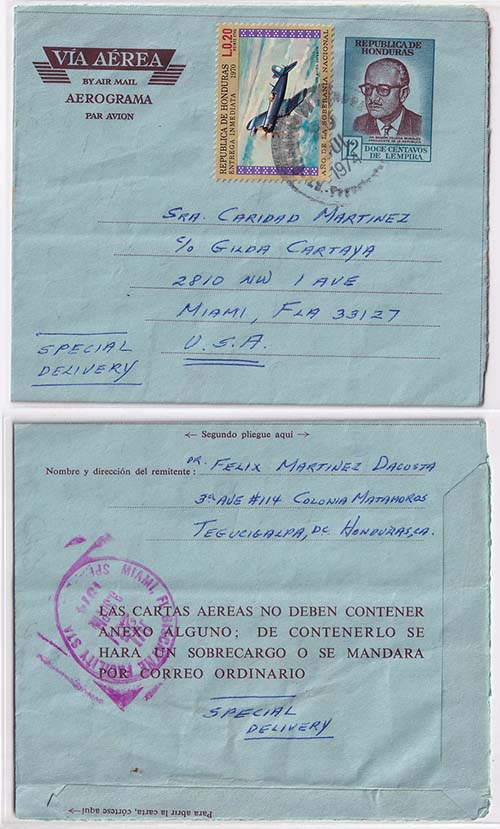 VÍA AÉREA
BY AIR MAIL
AEROGRAMA
PAR AVION
L0.20
REPUBLICA DE HONDURAS
ENTREGA INMEDIATA 1970
AÑO DE LA SOBERANÍA NACIONAL
REPUBLICA DE HONDURAS
PRESIDENTE DE LA REPUBLICA
12 DOCE CENTAVOS
DE LEMPIRA
1974
SRA. CARIDAD MARTINEZ
c/o GILDA CARTAYA
2810 NW 1 AVE
MIAMI, FLA 33127
U.S.A.
SPECIAL
DELIVERY
← Segundo pliegue aquí →
Nombre y dirección del remitente: DR. FELIX MARTINEZ DACOSTA
3a AVE #114 COLONIA MATAMOROS
TEGUCIGALPA, DC. HONDURAS, CA.
MIAMI, FL
FACILITY STA
1974
LAS CARTAS AEREAS NO DEBEN CONTENER
ANEXO ALGUNO; DE CONTENERLO SE
HARA UN SOBRECARGO O SE MANDARA
POR CORREO ORDINARIO
SPECIAL
DELIVERY
Para abrir la carta, córtese aquí